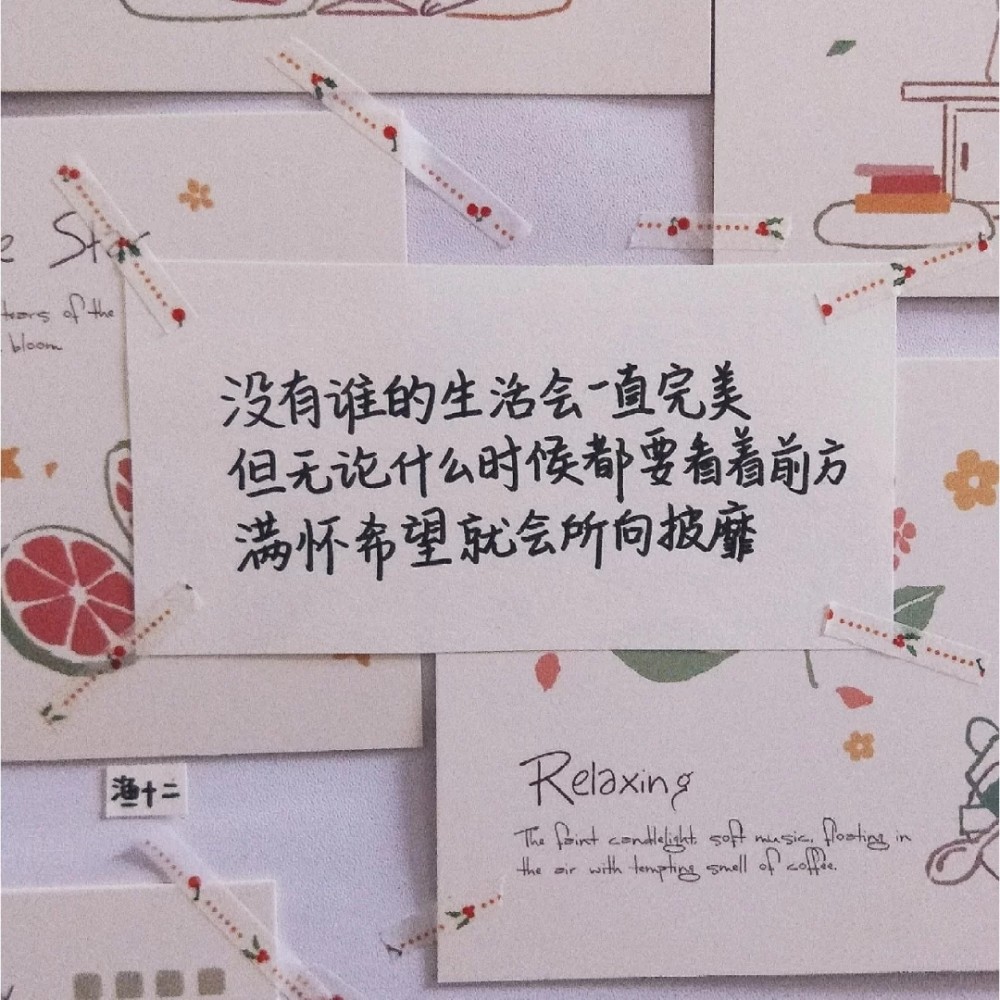 tears of the
bloom
没有谁的生活会一直完美
但无论什么时候都要看着前方
满怀希望就会所向披靡
渔十二
Relaxing
The faint candlelight, soft music, floating in
the air with tempting smell of coffee.